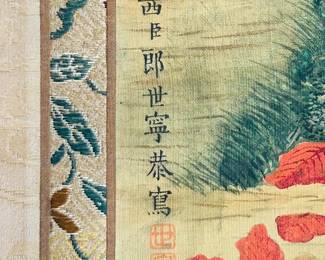 臣郎世寧恭寫
世